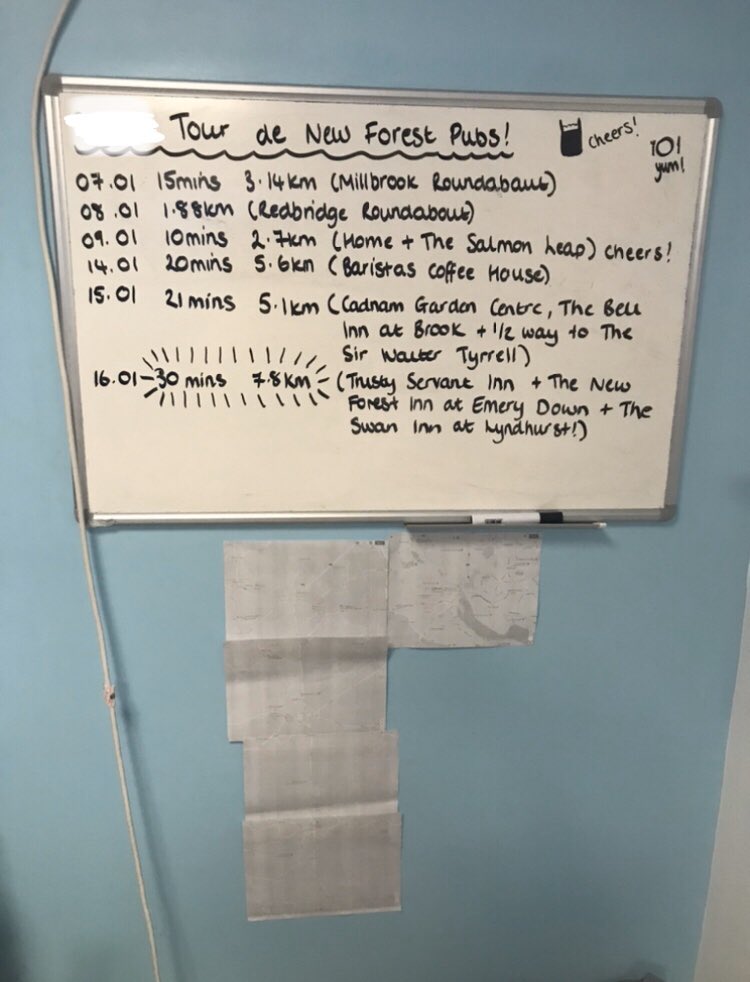 Tour de New Forest Pubs!
cheers!
yum!
07.01 15mins 3.14km (Millbrook Roundabout)
08.01 1.88km (Redbridge Roundabout)
09.01 10mins 2.7km (Home + The Salmon Leap) cheers!
14.01 20mins 5.6km (Baristas Coffee House)
15.01 21mins 5.1km (Cadnam Garden Centre, The Bell
Inn at Brook + 1/2 way to The
Sir Walter Tyrrell)
16.01 30 mins 7.8km (Trusty Servant Inn + The New
Forest Inn at Emery Down + The
Swan Inn at Lyndhurst!)